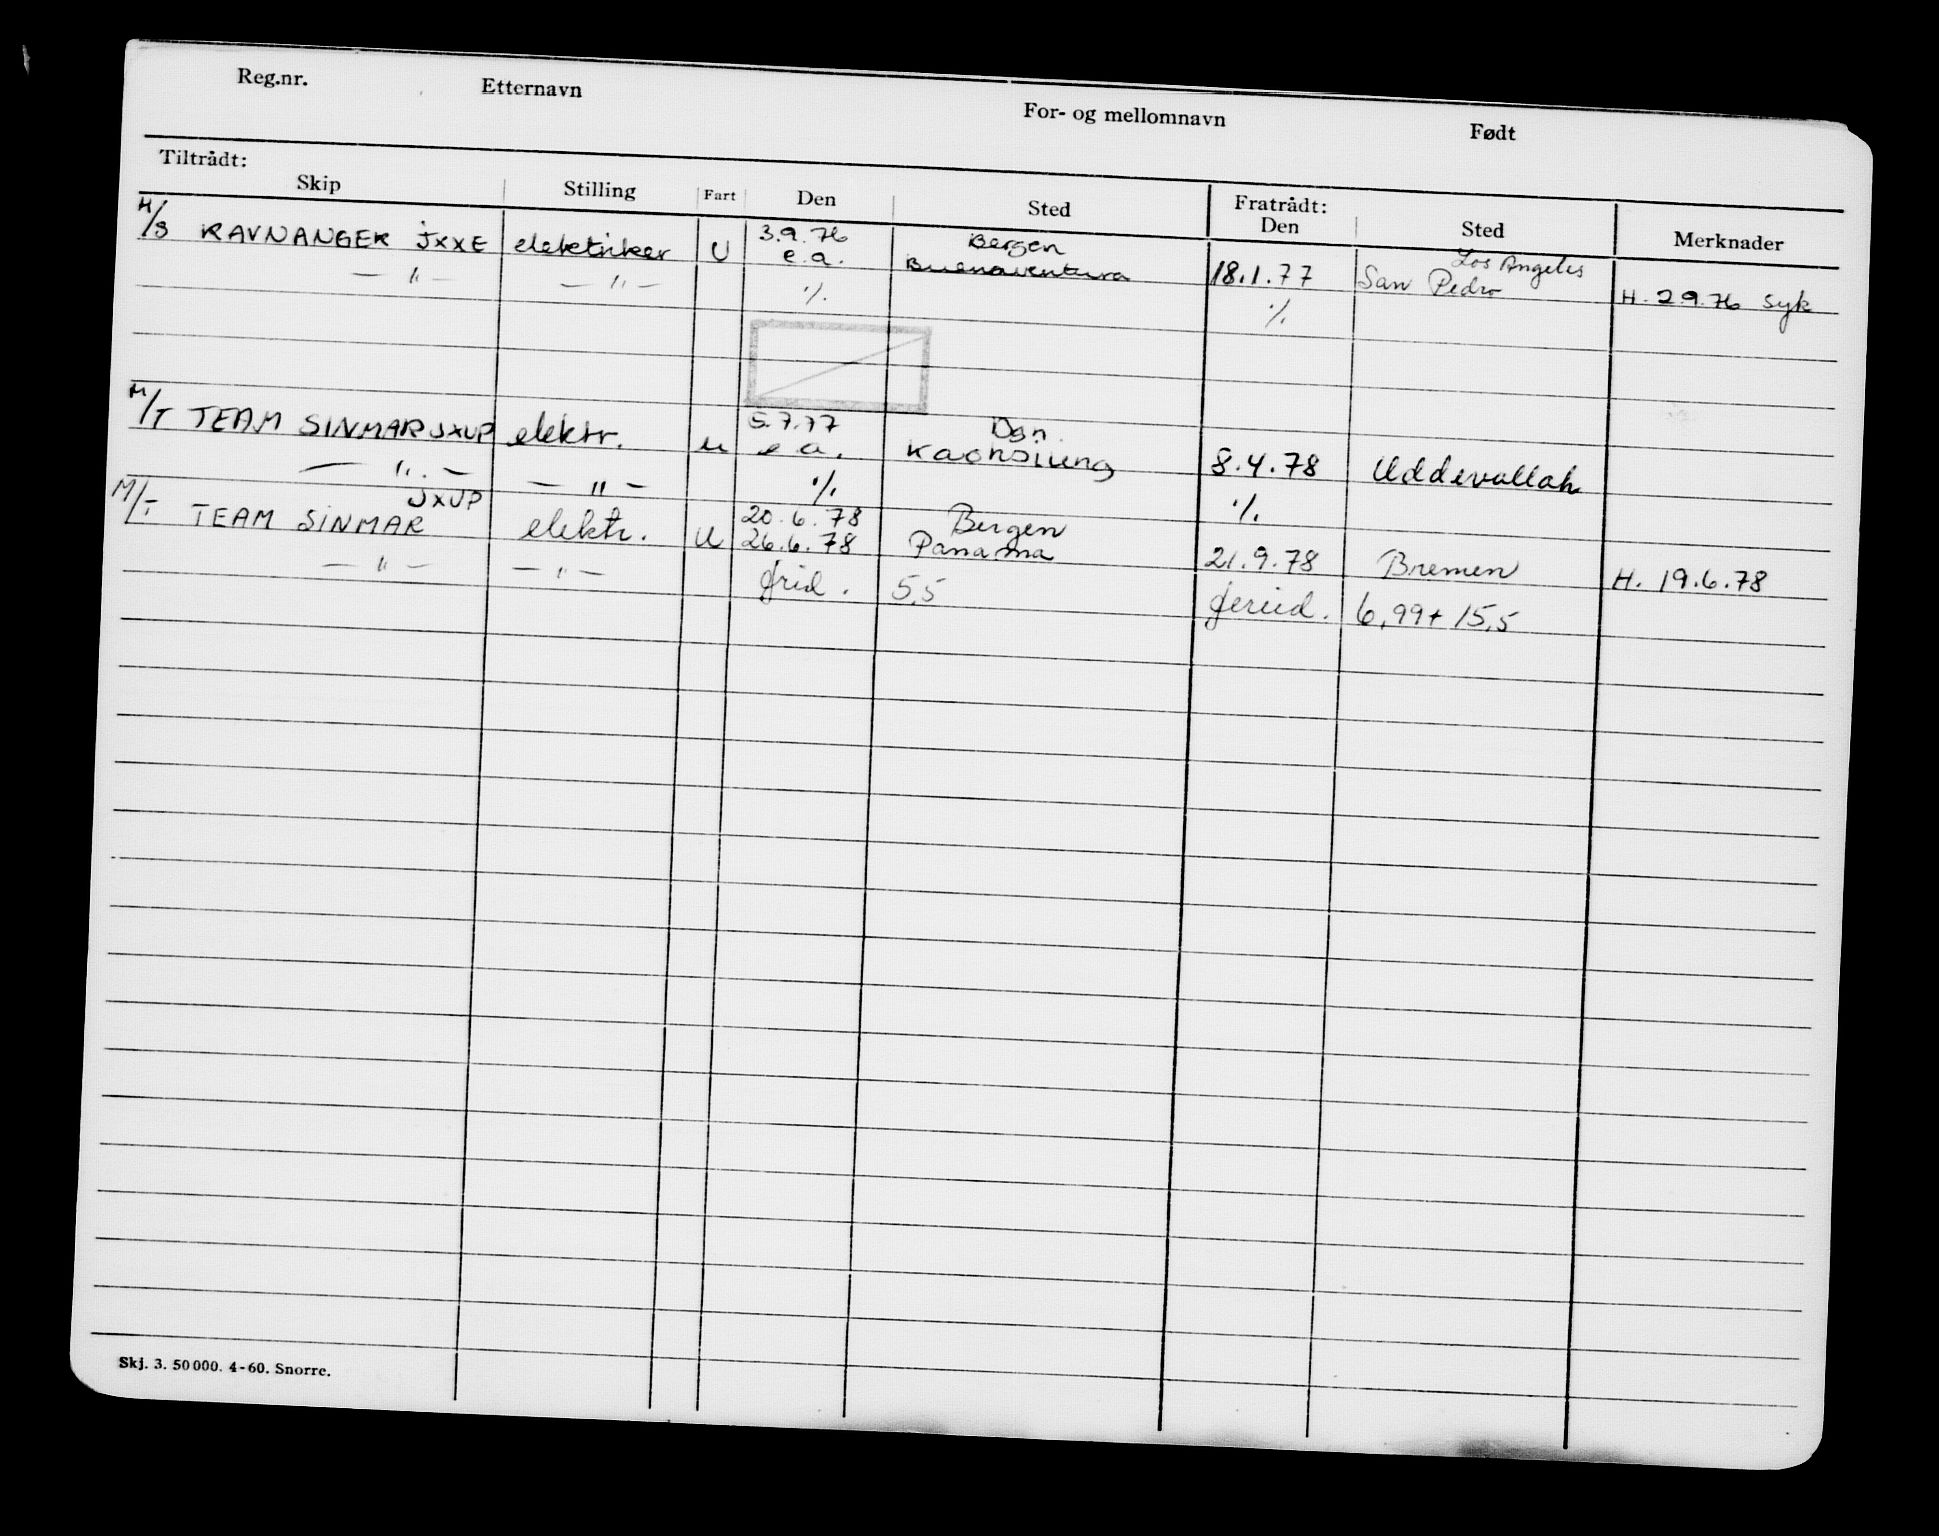 Reg.nr. Etternavn For- og mellomnavn Født
Tiltrådt: Fratrådt:
Skip Stilling Fart Den Sted Den Sted Merknader
3.9.76 Bergen Los Angeles
M/S RAVNANGER JXXE elektriker U e.a. Buenaventura 18.1.77 San Pedro H. 2.9.76 syk
— " — — " — ·/. ·/.
5.7.77
M/T TEAM SINMAR JXUP elektr. u e.a. Kaohsiung 8.4.78 Uddevallah
— " — — " — ·/. ·/.
JXUP 20.6.78 Bergen
M/T TEAM SINMAR elektr. U 26.6.78 Panama 21.9.78 Bremen H. 19.6.78
— " — — " — frid. 5,5 6,99+15,5
Skj. 3. 50000. 4-60. Snorre.